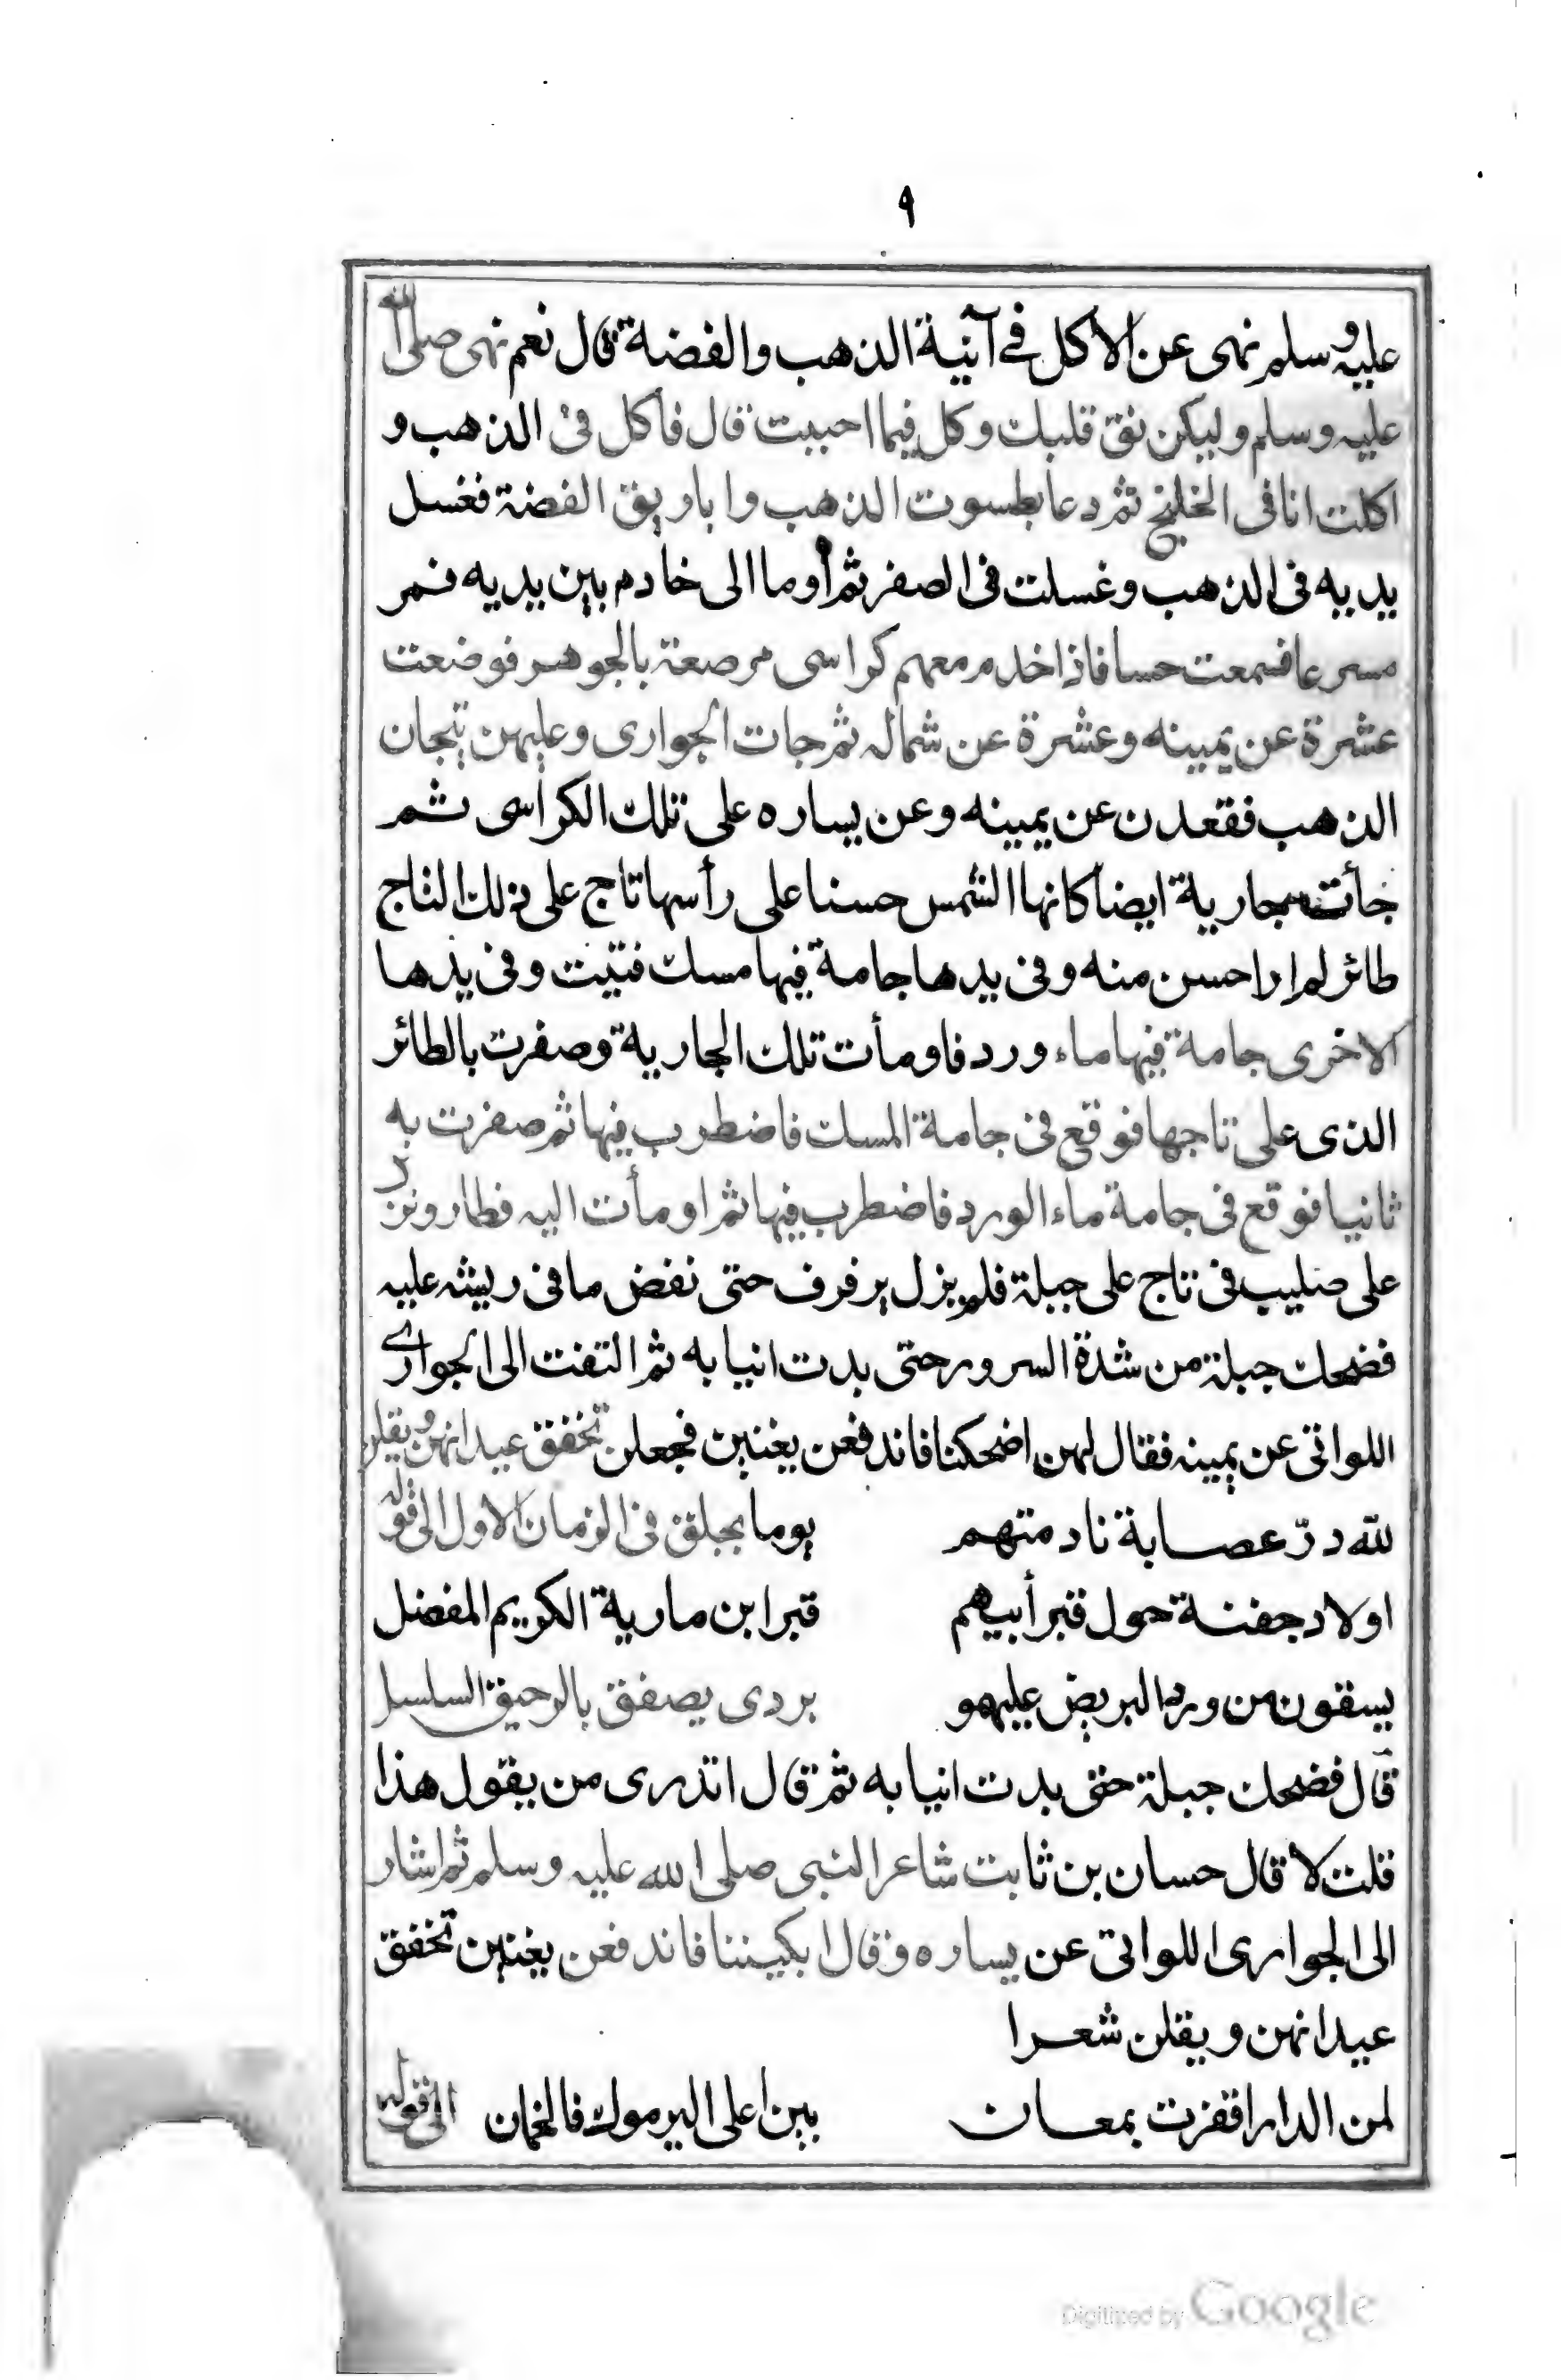 ٩
عليه وسلم نهى عن الاكل في آنية الذهب والفضة قال نعم نهى صلى الله
عليه وسلم وليكن نق قلبك وكل فيما احببت قال فأكل فى الذهب و
اكلت انا فى الخلنج ثم دعا بطسوت الذهب وا باريق الفضة فغسل
يديه فى الذهب وغسلت فى الصفر ثم أوما الى خادم بين يديه فمر
مسرعا فسمعت حسا فاذا خدم معهم كراسى مرصعة بالجوهر فوضعت
عشرة عن يمينه وعشرة عن شماله ثم جات الجوارى وعليهن تيجان
الذهب فقعدن عن يمينه وعن يساره على تلك الكراسى ثم
جأت جارية ايضا كانها الشمس حسنا على رأسها تاج على ذلك التاج
طائر لم ار احسن منه وفى يدها جامة فيها مسك فتيت وفى يدها
الاخرى جامة فيها ماء ورد فاومأت تلك الجارية وصفرت بالطائر
الذى على تاجها فوقع فى جامة المسك فاضطرب فيها ثم صفرت به
ثانيا فوقع فى جامة ماء الورد فاضطرب فيها ثم اومأت اليه فطار ونزل
على صليب فى تاج على جبلة فلم يزل يرفرف حتى نفض ما فى ريشه عليه
فضحك جبلة من شدة السرور حتى بدت انيابه ثم التفت الى الجوارے
اللواتى عن يمينه فقال لهن اضحكننا فاندفعن يغنين فجعلن تخفق عيدانهن ويقلن
لله درّ عصابة نادمتهم يوما بجلق فى الزمان الاول الى قوله
اولاد جفنة حول قبر أبيهم قبر ابن مارية الكريم المفضل
يسقون من ورد البريض عليهمو بردى يصفق بالرحيق السلسل
قال فضحك جبلة حتى بدت انيابه ثم قال اتدرى من يقول هذا
قلت لا قال حسان بن ثابت شاعر النبى صلى الله عليه وسلم ثم اشار
الى الجوارى اللواتى عن يساره وقال ابكيننا فاندفعن يغنين تخفق
عيدانهن ويقلن شعرا
لمن الدار اقفرت بمعان بين اعلى اليرموك فالخمان الى قوله
Digitized by Google